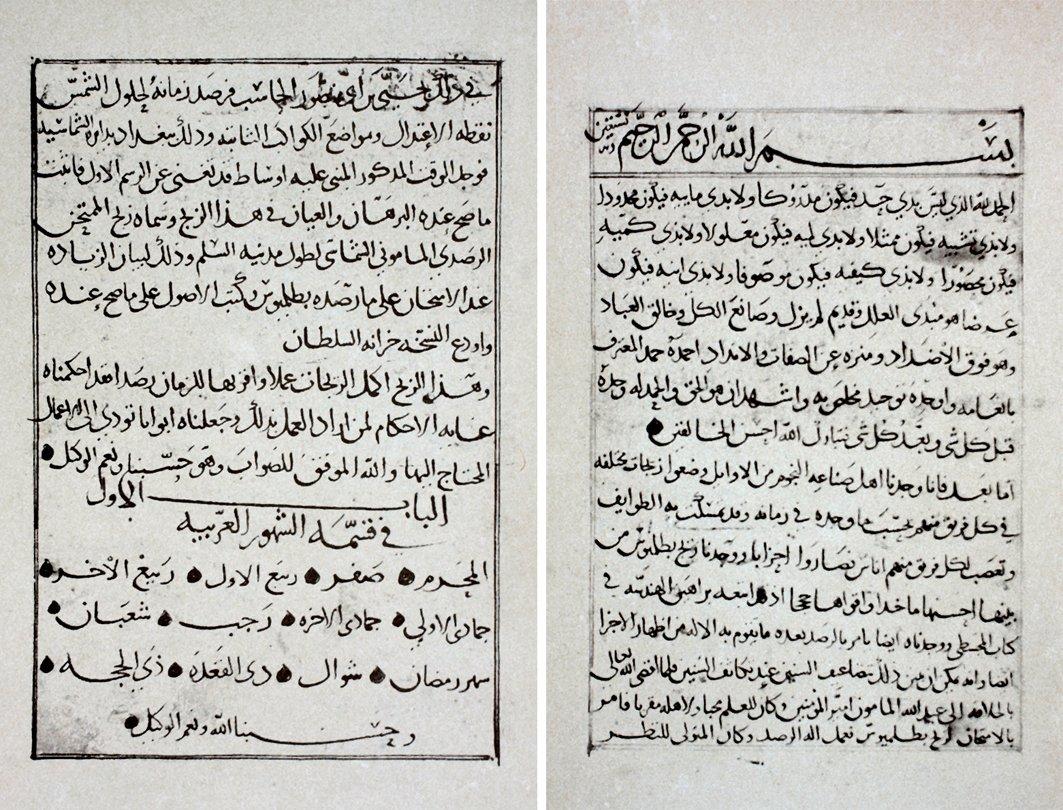 بسم الله الرحمن الرحيم
الحمد لله الذي ليس بذي حد فيكون مدروكا ولا بذي ماييه فيكون محدودا
ولا بذي تشبيه فيكون ممثلا ولا بذي لميه فيكون معلولا ولا بذي كميه
فيكون محصورا ولا بذي كيفيه فيكون موصوفا ولا بذي انيه فيكون
هو مبدى العلل وقديم لم يزل وصانع الكل وخالق العباد
وهو فوق الاضداد ومنزه عن الصفات والانداد احمده حمد المعترف
بانعامه واوحده توحيد مخلص به واشهد ان هو الحق والحمد له وحده
قبل كل شي وبعد كل شي تبارك الله احسن الخالقين
اما بعد فانا وجدنا اهل صناعه النجوم من الاوايل وضعوا زيجات مختلفه
في كل فريق منهم بحسب ما وجده في زمانه وقد تمسكت به الطوايف
وتعصب لكل فريق منهم اناس فصاروا احزابا ووجدنا زيج بطلميوس من
بينها احسنها ماخذا واقواها حججا اذ امعه براهين الهندسه في
كتاب المجسطي ووجدناه ايضا يامر بالرصد بعده ما يقوم به الاله من اظهار الاجزا
من ذلك عند السنين فلما افضى الله تعالى
بالخلافه الى عبد الله المامون امير المؤمنين وكان للعلم محبا ولاهله مقربا فامر
بالامتحان لزيج بطلميوس بعمل الة الرصد وكان المتولى للنظر
في ذلك يحيى بن ابي منصور الحاسب فرصد زمانه لحلول الشمس
نقطه الاعتدال ومواضع الكواكب الثابته وذلك ببغداد بداره الشماسيه
فوجد الوقت المذكور المبنى عليه اوساط قد تغنى عن الرسم الاول فاثبت
ما صح عنده البرهان والعيان في هذا الزيج وسماه زيج الممتحن
الرصدى المامونى الشماسى لطول مدينه السلم وذلك لبيان الزياده
عند الامتحان على ما رصده بطلميوس كتب الاصول على ما صح عنده
واودع النسخه خزانه السلطان
وهذا الزيج اكمل الزيجات عملا واقربها للزمان رصدا قد احكمناه
غايه الاحكام لمن اراد العمل بذلك وجعلناه ابوابا تودي الى الاعمال
المحتاج اليها والله الموفق للصواب وهو حسبنا ونعم الوكيل
الباب الاول
في قسمه الشهور العربيه
المحرم صفر ربيع الاول ربيع الاخر
جمادى الاولى جمادى الاخره رجب شعبان
شهر رمضان شوال ذى القعده ذي الحجه
وحسبنا الله ونعم الوكيل